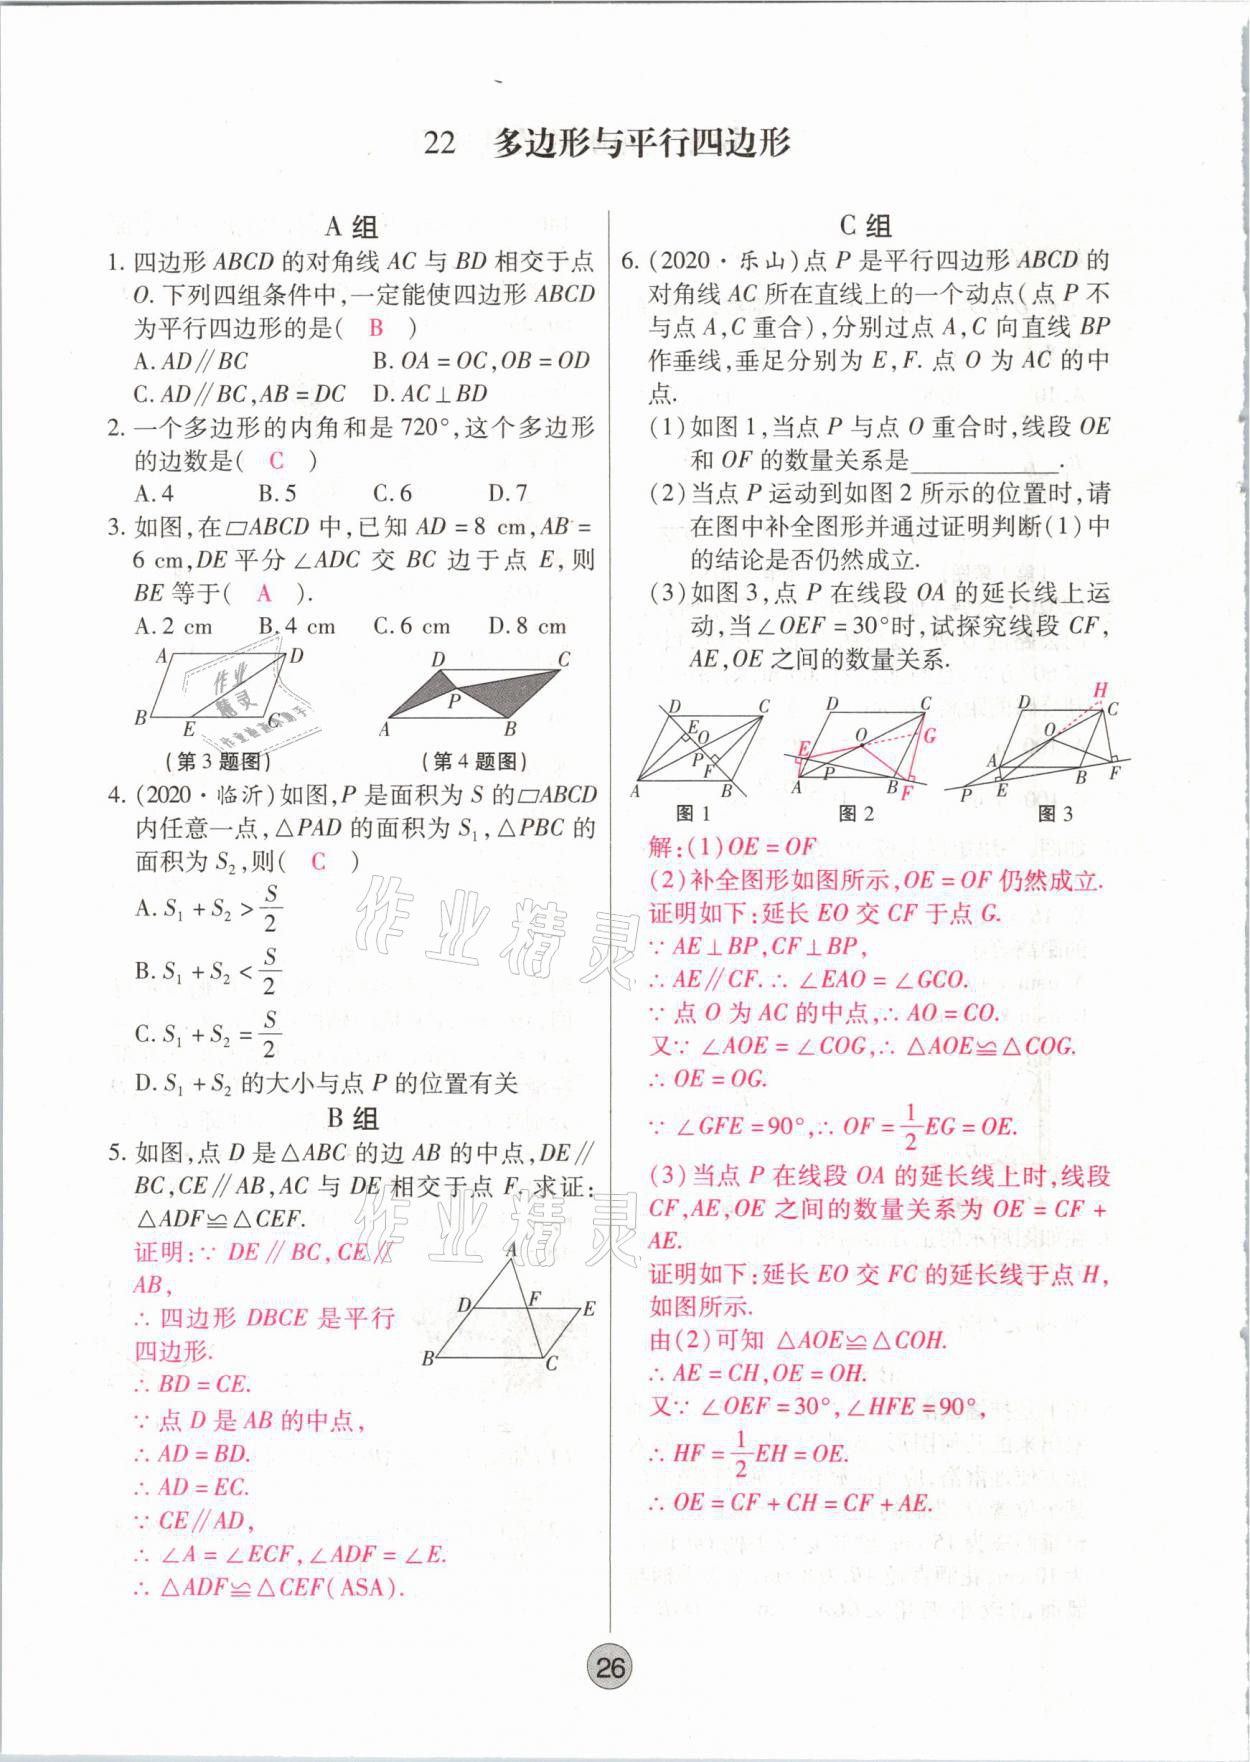 22 多边形与平行四边形
A 组
1. 四边形 ABCD 的对角线 AC 与 BD 相交于点
O. 下列四组条件中,一定能使四边形 ABCD
为平行四边形的是( B )
A. AD∥BC B. OA=OC,OB=OD
C. AD∥BC,AB=DC D. AC⊥BD
2. 一个多边形的内角和是 720°,这个多边形
的边数是( C )
A. 4 B. 5 C. 6 D. 7
3. 如图,在▱ABCD 中,已知 AD=8 cm,AB=
6 cm,DE 平分∠ADC 交 BC 边于点 E,则
BE 等于( A ).
A. 2 cm B. 4 cm C. 6 cm D. 8 cm
A D B E C
D C P A B
(第 3 题图) (第 4 题图)
4. (2020·临沂)如图,P 是面积为 S 的▱ABCD
内任意一点,△PAD 的面积为 S₁,△PBC 的
面积为 S₂,则( C )
A. S₁+S₂>S/2
B. S₁+S₂<S/2
C. S₁+S₂=S/2
D. S₁+S₂ 的大小与点 P 的位置有关
B 组
5. 如图,点 D 是△ABC 的边 AB 的中点,DE∥
BC,CE∥AB,AC 与 DE 相交于点 F. 求证:
△ADF≌△CEF.
证明:∵ DE∥BC,CE∥
AB,
∴ 四边形 DBCE 是平行
四边形.
∴ BD=CE.
∵ 点 D 是 AB 的中点,
∴ AD=BD.
∴ AD=EC.
∵ CE∥AD,
∴ ∠A=∠ECF,∠ADF=∠E.
∴ △ADF≌△CEF(ASA).
A D F E B C
C 组
6. (2020·乐山)点 P 是平行四边形 ABCD 的
对角线 AC 所在直线上的一个动点(点 P 不
与点 A,C 重合),分别过点 A,C 向直线 BP
作垂线,垂足分别为 E,F. 点 O 为 AC 的中
点.
(1)如图 1,当点 P 与点 O 重合时,线段 OE
和 OF 的数量关系是__________.
(2)当点 P 运动到如图 2 所示的位置时,请
在图中补全图形并通过证明判断(1)中
的结论是否仍然成立.
(3)如图 3,点 P 在线段 OA 的延长线上运
动,当∠OEF=30°时,试探究线段 CF,
AE,OE 之间的数量关系.
D C E O P F A B
D C G O E P A B F
H D C O A B F P E
图 1 图 2 图 3
解:(1)OE=OF
(2)补全图形如图所示,OE=OF 仍然成立.
证明如下:延长 EO 交 CF 于点 G.
∵ AE⊥BP,CF⊥BP,
∴ AE∥CF.∴ ∠EAO=∠GCO.
∵ 点 O 为 AC 的中点,∴ AO=CO.
又∵ ∠AOE=∠COG,∴ △AOE≌△COG.
∴ OE=OG.
∵ ∠GFE=90°,∴ OF=1/2EG=OE.
(3)当点 P 在线段 OA 的延长线上时,线段
CF,AE,OE 之间的数量关系为 OE=CF+
AE.
证明如下:延长 EO 交 FC 的延长线于点 H,
如图所示.
由(2)可知 △AOE≌△COH.
∴ AE=CH,OE=OH.
又∵ ∠OEF=30°,∠HFE=90°,
∴ HF=1/2EH=OE.
∴ OE=CF+CH=CF+AE.
作业精灵
作业精灵
作业精灵
26